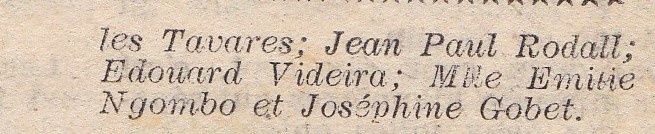 les Tavares; Jean Paul Rodall;
Edouard Videira; Mlle Emilie
Ngombo et Joséphine Gobet.